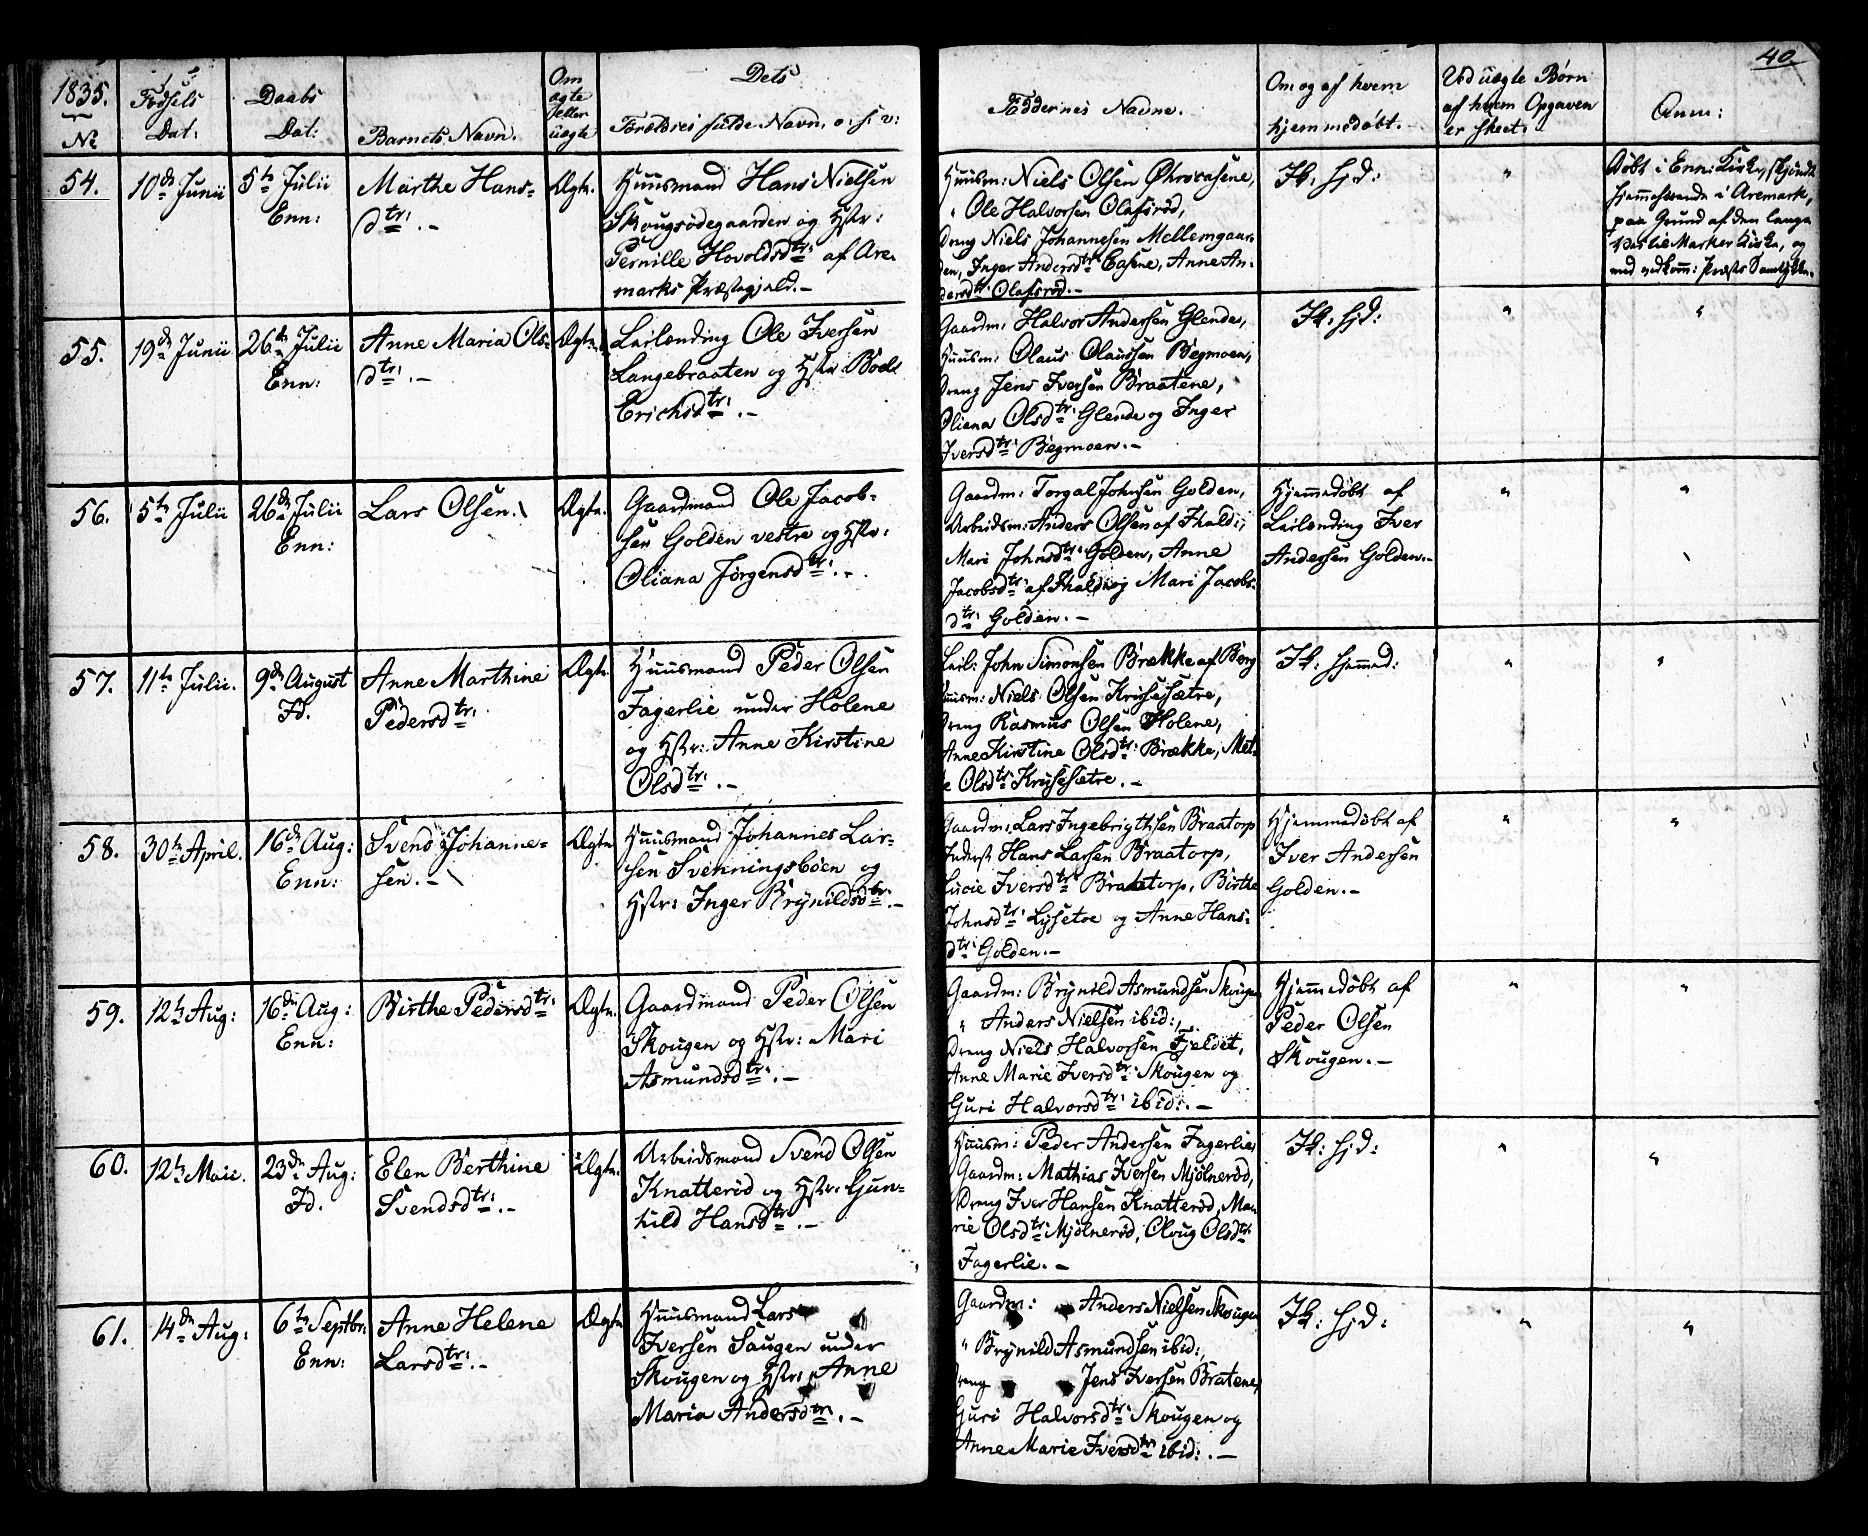 40.
1835.
Fødsels
Dat:
Daabs
Dat:
Barnets Navn.
Om
ægte
eller
uægte
Dets
Forældres fulde Navn, o: s: v:
Faddernes Navne.
Om og af hvem
hjemmedøbt.
Ved uægte Børn
af hvem Opgaven
er skeet.
Anm:
No
54.
10de Junii
5te Julii
Enn:
Marthe Hans-
dtr: .-
Ægte.
Huusmand Hans Nielsen
Skougsødegaarden og Hstr:
Pernille Hovoldsdtr: af Are-
marks Præstegjeld.-
Huusm: Niels Olsen
" Ole Halvorsen Olafsrød,
Dreng Niels Johannesen Mellemgaar-
den, Inger Andersdtr: Aasene, Anne An-
dersdtr: Olafsrød.-
Ik: hjd:
"
Døbt i Enn: Kirke, skjøndt
hjemmehørende i Aremark,
paa Grund af den lange
Vei til Marker Kirke, og
med vedkomm: Præsts Samtykke.-
55.
19de Junii
26de Julii
Enn:
Anne Maria Ols-
dtr: .-
Ægte.
Leilænding Ole Iversen
Langebraaten og Hstr: Bodl
Erichsdtr: .-
Gaardm: Halvor Andersen Glende,
Huusm: Olaus Olaussen Bøgmoen,
Dreng Jens Iversen Braatene,
Oliana Olsdtr: Glende og Inger
Iversdtr: Bøgmoen.-
Ik: hjd:
"
"
56.
5te Julii
26de Julii
Enn:
Lars Olsen.
Ægte.
Gaardmand Ole Jacob-
sen Golden vestre og Hstr:
Oliana Jørgensdtr: .-
Gaardm: Torgal Johnsen Golden,
Arbeidsm: Anders Olsen af Fhald:,
Mari Johnsdtr: Golden, Anne
Jacobsdtr: af Fhald: og Mari Jacobs-
dtr: Golden.-
Hjemmedøbt af
Leilænding Iver
Andersen Golden.-
"
"
57.
11te Julii.
9de August
Id.
Anne Marthine
Pedersdtr:
Ægte.
Huusmand Peder Olsen
Fagerlie under Holene
og Hstr: Anne Kirstine
Olsdtr: .-
Leil: John Simonsen Brække af Berg
Huusm: Niels Olsen Krusesætre,
Dreng Rasmus Olsen Holene,
Anne Kirstine Olsdtr: Brække, Met-
te Olsdtr: Krusesætre.-
Ik: hjemmed:
"
"
58.
30te April.
16de Aug:
Enn:
Svend Johanne-
sen.-
Ægte.
Huusmand Johannes Lar-
sen Svenningsbøen og
Hstr: Inger Brynildsdtr: .-
Gaardm: Lars Ingebrigthsen Braatorp
Inderst Hans Larsen Braatorp,
Lucie Iversdtr: Braatorp, Birthe
Johnsdtr: Lysetoe og Anne Hans-
dtr: Golden.-
Hjemmedøbt af
Iver Andersen
Golden.-
"
"
59.
12te Aug:
16de Aug:
Enn:
Birthe Pedersdtr:
Ægte.
Gaardmand Peder Olsen
Skougen og Hstr: Mari
Asmundsdtr: .-
Gaardm: Brynild Asmundsen Skougen
" Anders Nielsen ibid:,
Dreng Niels Halvorsen Fjeldet,
Anne Marie Iversdtr: Skougen og
Guri Halvorsdtr: ibid: .-
Hjemmedøbt af
Peder Olsen
Skougen.-
"
"
60.
12te Maii.
23de Aug:
Id.
Elen Berthine
Svendsdtr: .-
Ægte.
Arbeidsmand Svend Olsen
Knatterød og Hstr: Gun-
hild Hansdtr: .-
Huusm: Peder Andersen Fagerlie,
Gaardm: Mathias Iversen Mjølnerød,
Dreng Iver Hansen Knatterød, Ma-
rie Olsdtr: Mjølnerød, Oloug Olsdtr:
Fagerlie.-
Ik: hjd:
"
"
61.
14de Aug:
6te Septbr:
Enn:
Anne Helene
Larsdtr: .-
Ægte.
Huusmand Lars
Iversen Saugen under
Skougen og Hstr: Anne
Maria Andersdtr: .-
Gaardm: Anders Nielsen Skougen
" Brynild Asmundsen ibid:,
Dreng Jens Iversen Bratene,
Guri Halvorsdtr: Skougen og
Anne Marie Iversdtr: ibid: .-
Ik: hjd:
"
"